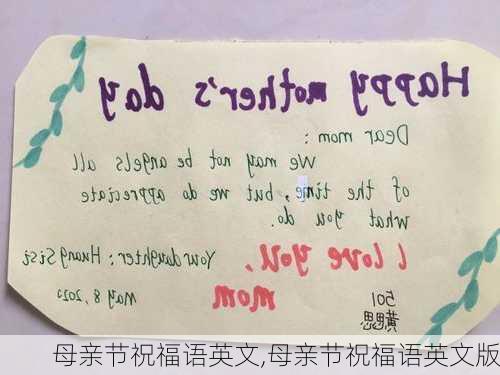 Happy mother's day
Dear mom:
We may not be angels all
of the time, but we do appreciate
what you do.
I love you,
mom
Your daughter: Huang Sisi
May 8, 2022
501
黄思思
母亲节祝福语英文,母亲节祝福语英文版